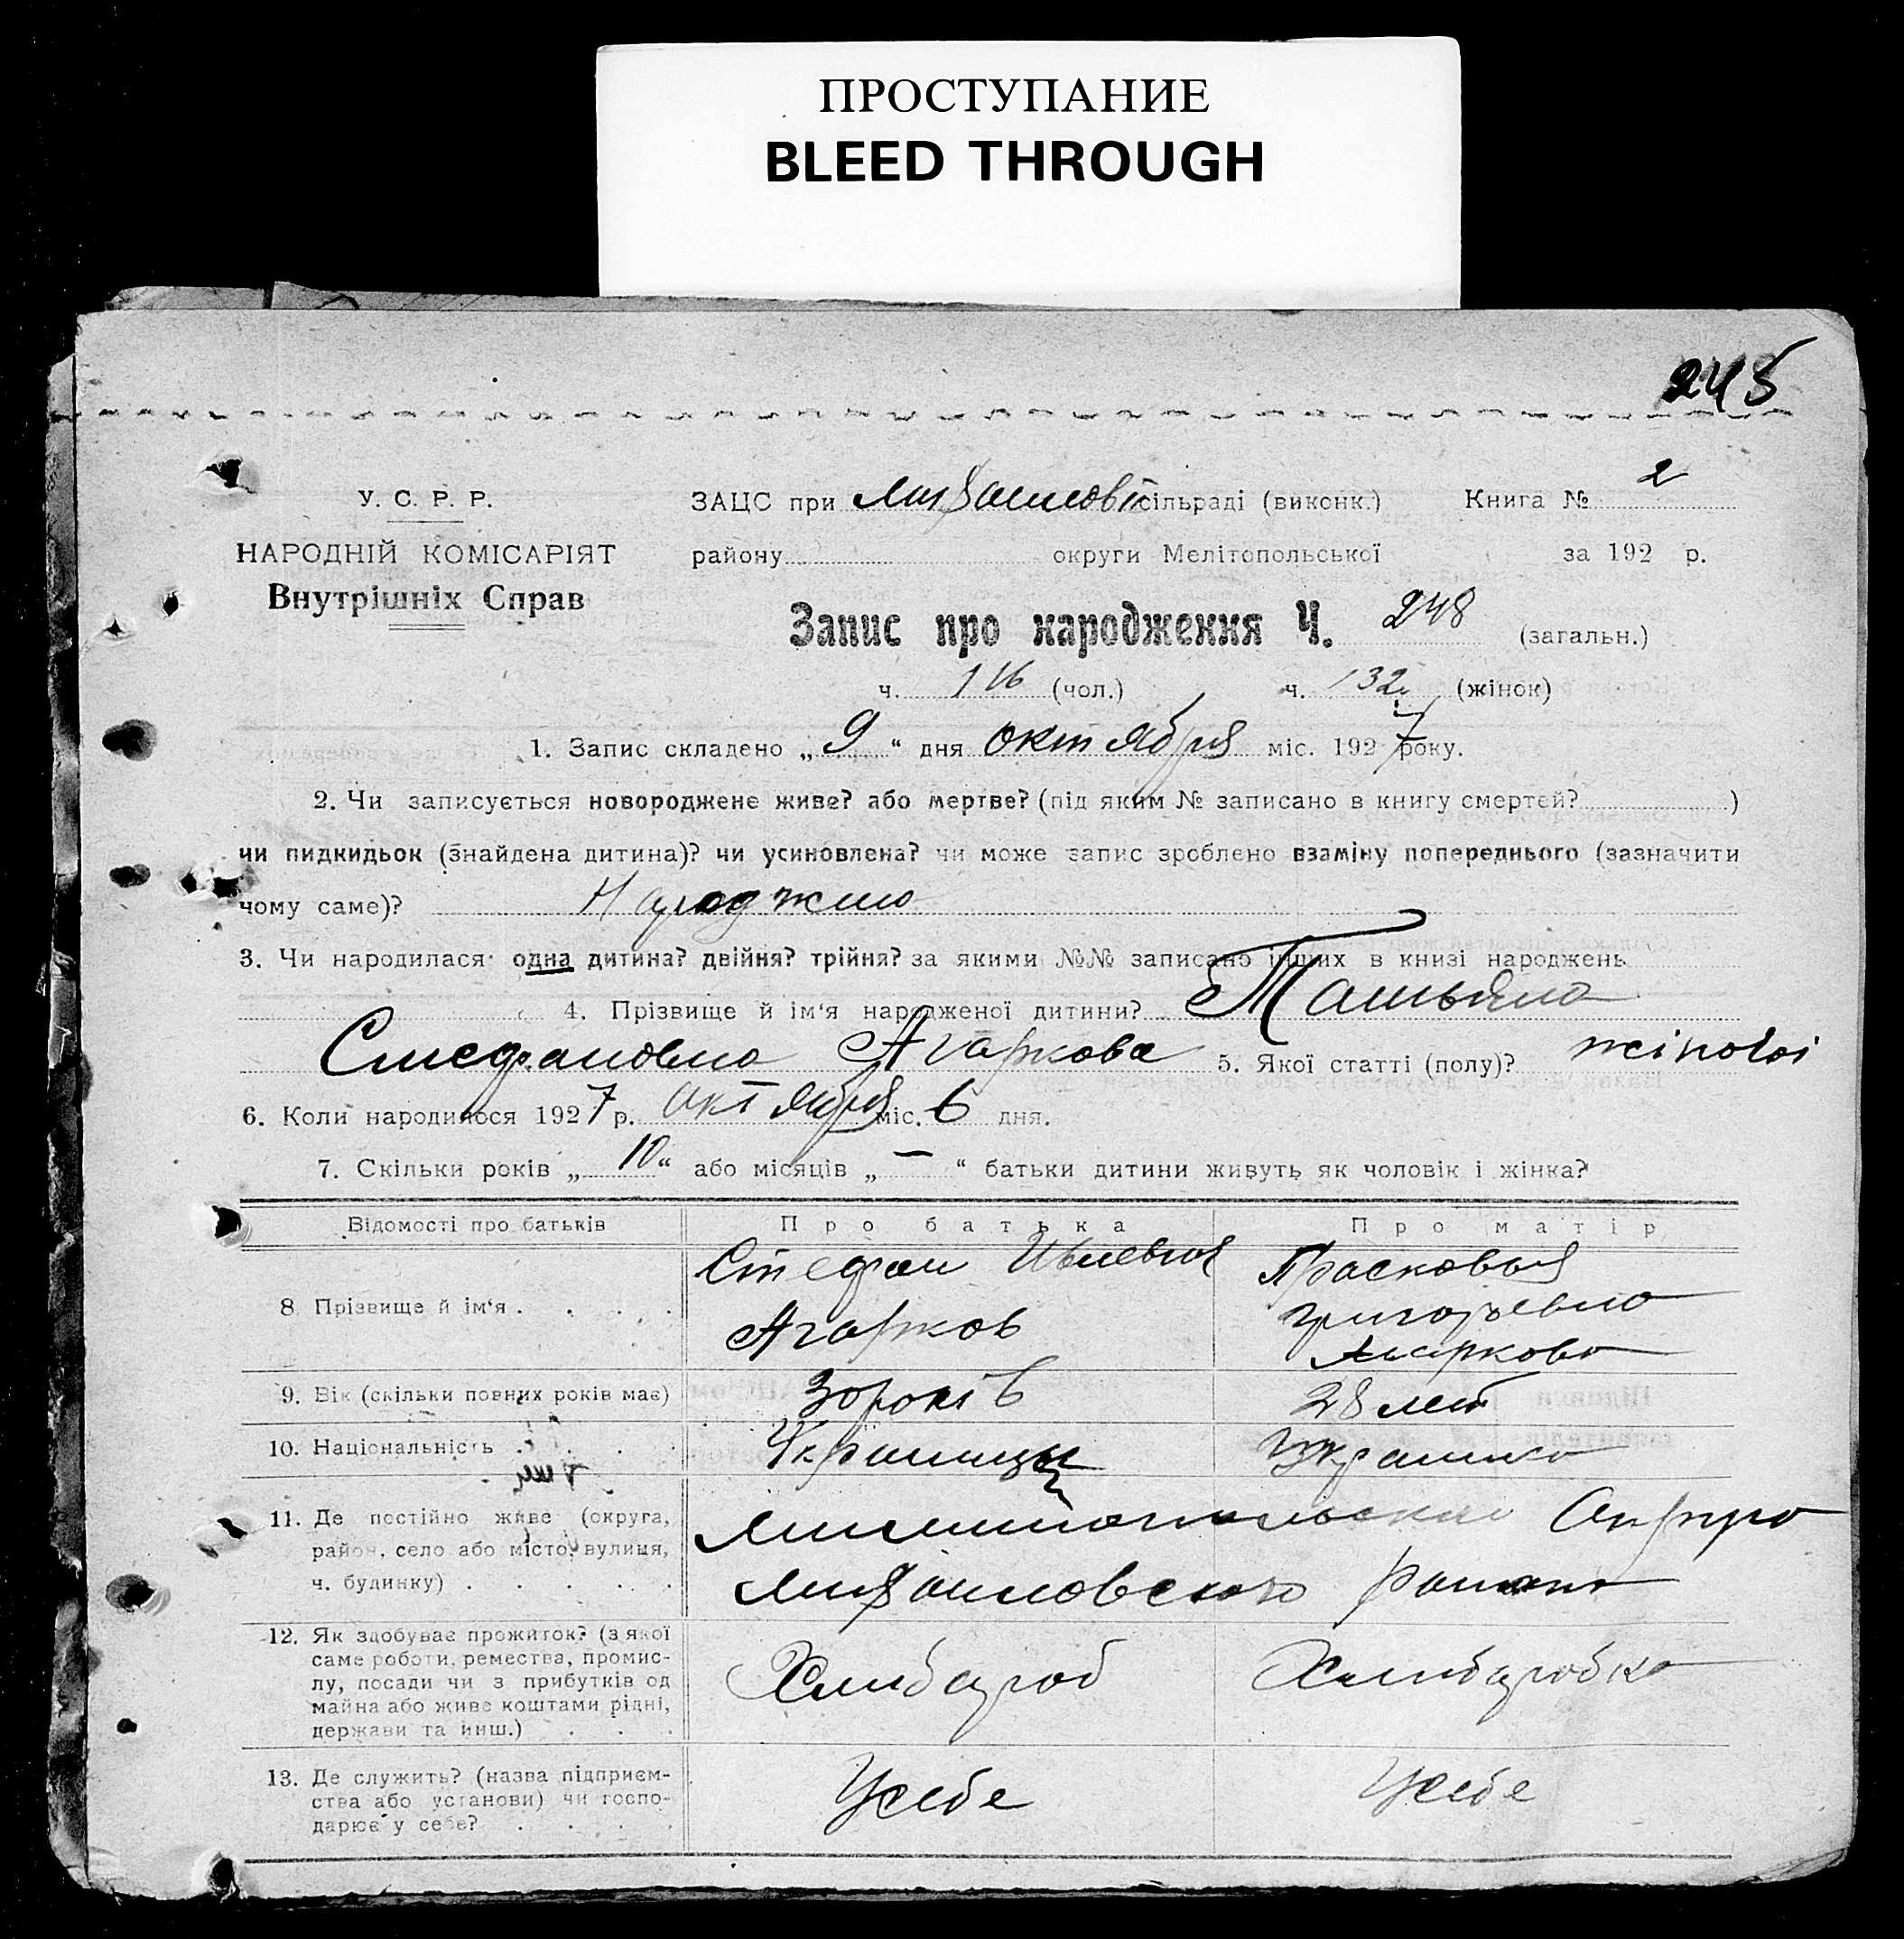 ПРОСТУПАНИЕ
BLEED THROUGH
245
У. С. Р. Р.
НАРОДНІЙ КОМІСАРІЯТ
Внутрішніх Справ
ЗАЦС при Михайловк сільраді (виконк.) Книга № 2
району округи Мелітопольської за 192 р.
Запис про народження Ч. 248 (загальн.)
ч. 116 (чол.) ч. 132 (жінок)
1. Запис складено „ 9 “ дня октября міс. 1927 року.
2. Чи записується новороджене живе? або мертве? (під яким № записано в книгу смертей? )
чи пидкидьок (знайдена дитина)? чи усиновлена? чи може запис зроблено взаміну попереднього (зазначити
чому саме)?
3. Чи народилася одна дитина? двійня? трійня? за якими №№ записано інших в книзі народжень
4. Прізвище й ім‘я народженої дитини? Татьяна
Стефановна Агаркова 5. Якої статті (полу)? жіночої
6. Коли народилося 1927 р. октября міс. 6 дня.
7. Скільки років „ 10 “ або місяців „ — “ батьки дитини живуть як чоловік і жінка?
Відомості про батьків Про батька Про матір
8. Прізвище й ім‘я . . . . Стефан Агарков Прасковья Григорьевна Агаркова
9. Вік (скільки повних років має) 28 лет
10. Національність . . . . Украинец Украинка
11. Де постійно живе (округа,
район, село або місто, вулиця,
ч. будинку) . . . . .
Михайловского района
12. Як здобуває прожиток? (з якої
саме роботи, ремества, промис-
лу, посади чи з прибутків од
майна або живе коштами рідні,
держави та инш.) . . .
Хлибороб Хлиборобка
13. Де служить? (назва підприєм-
ства або установи) чи госпо-
дарює у себе? . . . .
Усебе Усебе